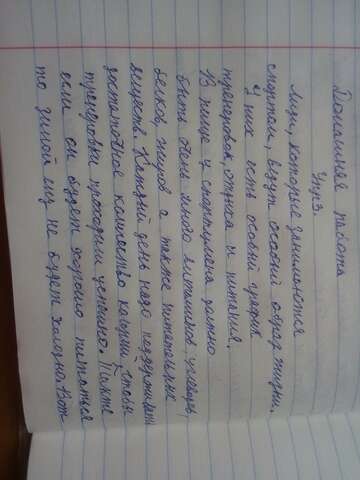 Домашняя работа
Упр3.
Лизи, которые занимаются
спортом, ведут особый образ жизни.
У них есть особый график
тренеровок, отдыха и питания.
В пище у спортсмена должно
быть очень много витаминов, углеводов,
белков, жиров а также питательных
веществ. Каждый день надо поддерживать
достаточное количество калорий, чтобы
тренеровки проходили успешно. Также
если он будет хорошо питаться
то зимой ему не будет холодно. Вот